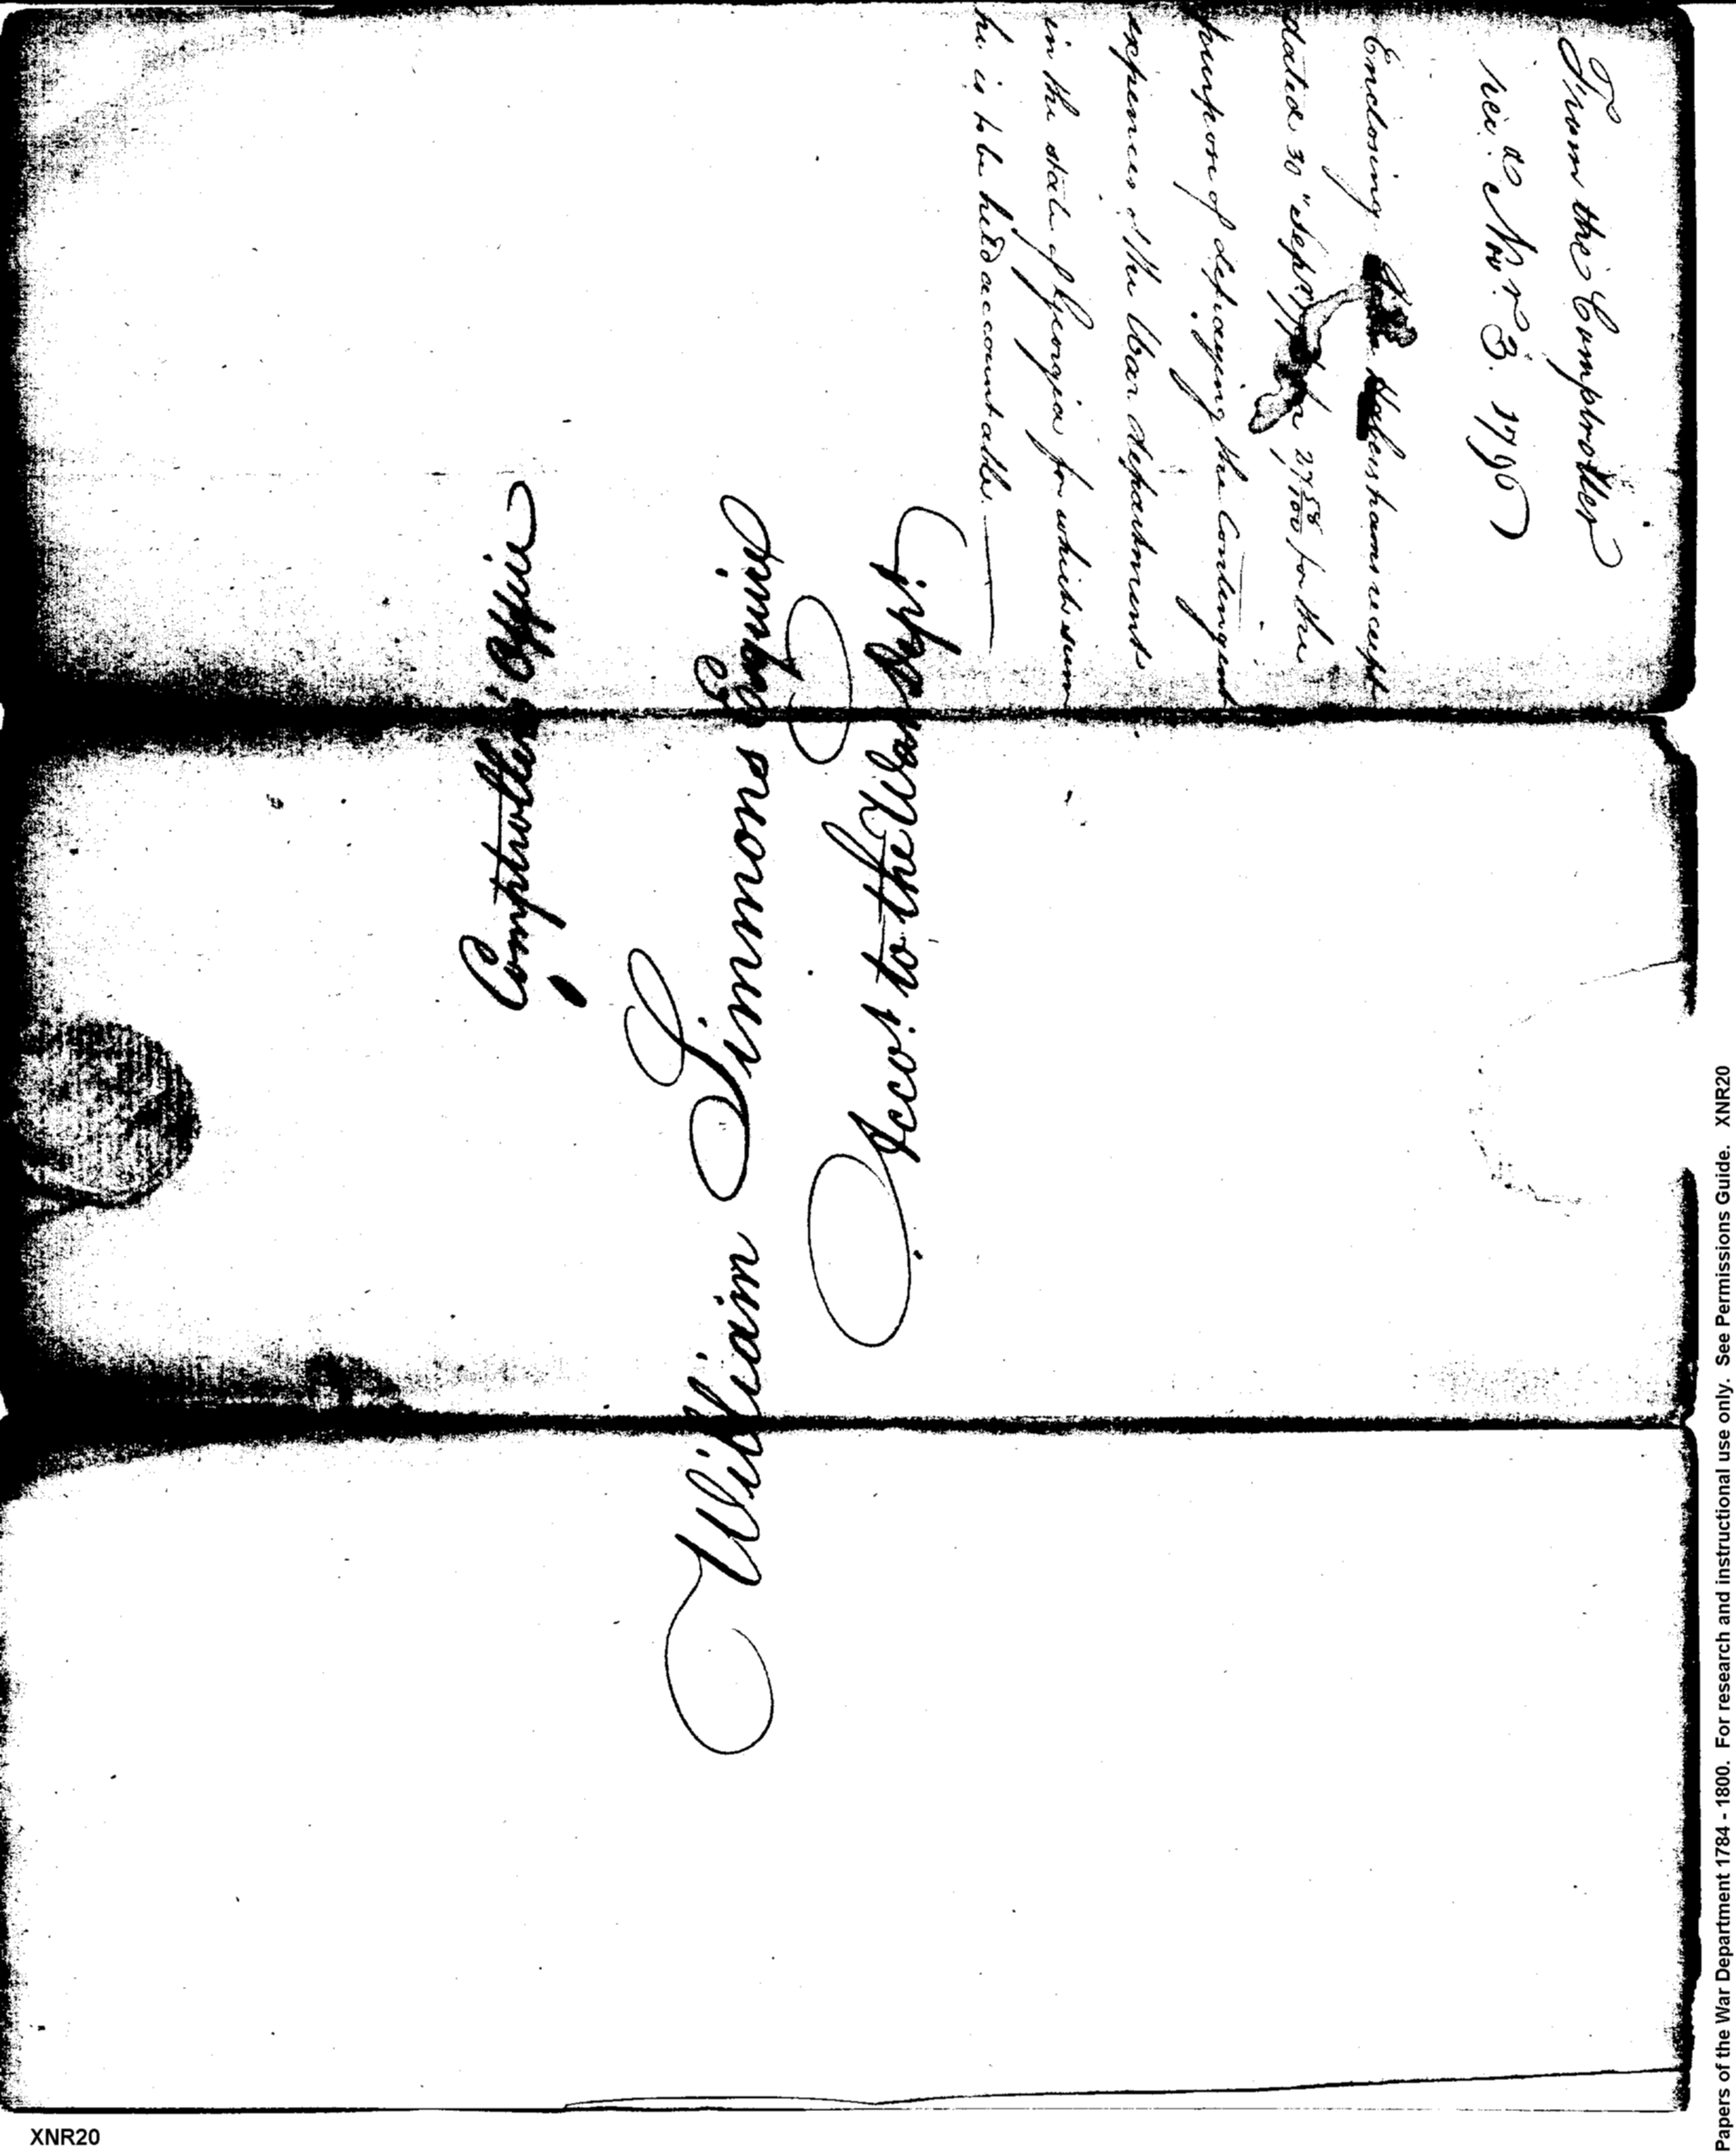 From the Comptroller
rec.d Nov.r 3. 1796
Enclosing Habershams receipt
dated 30" Sept.r for 27 58/100 for the
purpose of defraying the Contingent
expences of the War department
in the state of Georgia for which sum
he is to be held accountable.
Comptrollers Office
William Simmons Esquire
Acco.t to the War Dep.t
Papers of the War Department 1784 - 1800. For research and instructional use only. See Permissions Guide. XNR20
XNR20